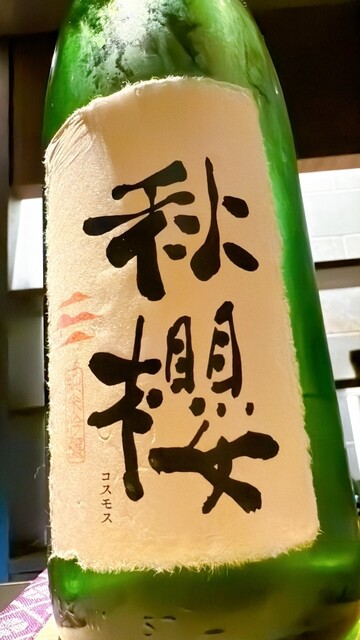 秋櫻
コスモス